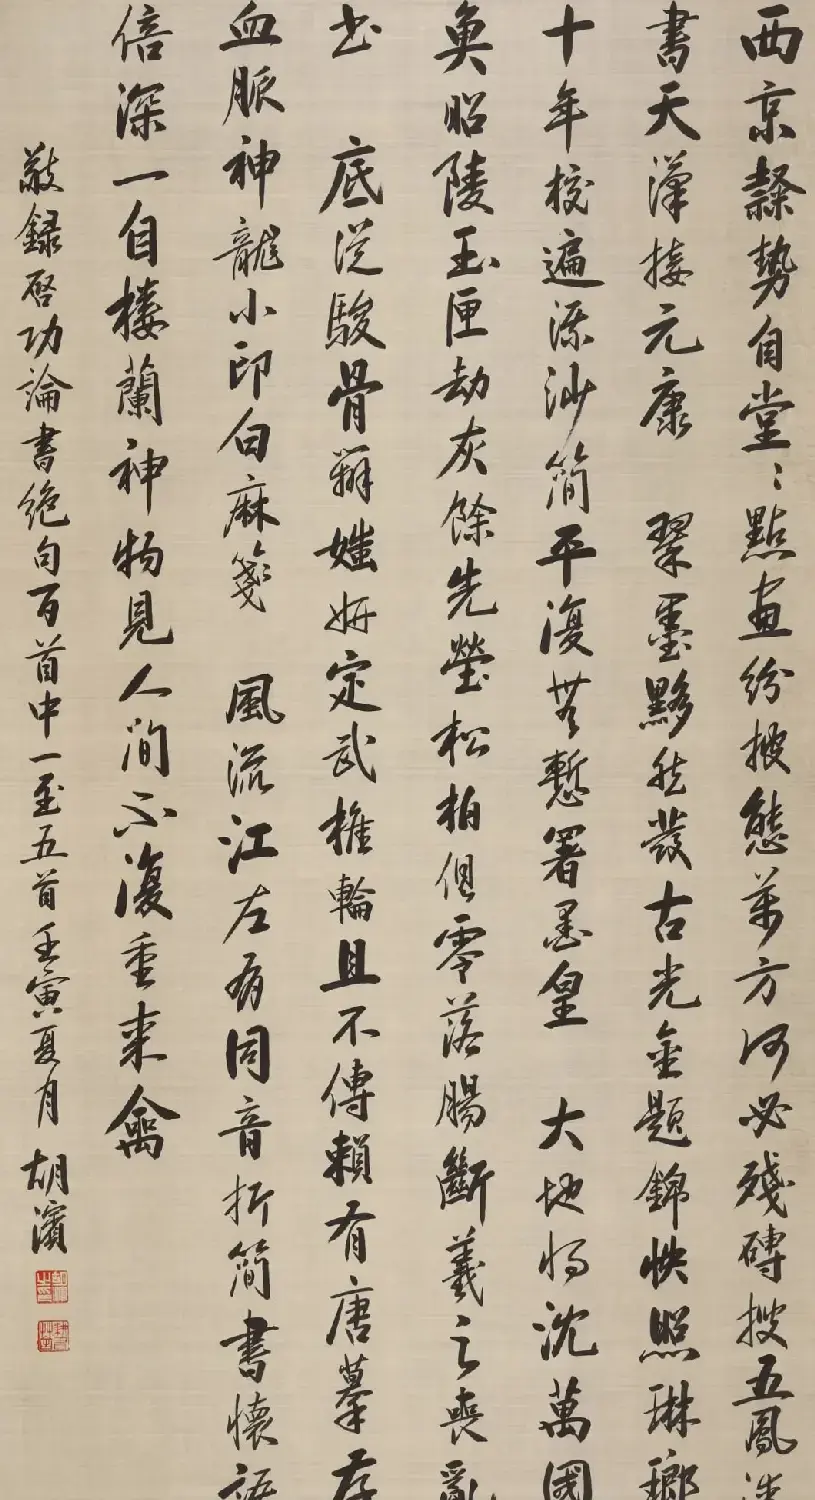 西京隸勢自堂〻點畫紛披態萬方何必殘磚搜五鳳漆
書天漢接元康　翠墨黟然發古光金題錦帙照琳瑯
十年校遍流沙簡平復無慚署墨皇　大地將沈萬國
魚昭陵玉匣劫灰餘先塋松柏但零落腸斷羲之喪亂
書　底從駿骨辨媸妍定武椎輪且不傳賴有唐摹存
血脈神龍小印白麻箋　風流江左有同音折簡書懷語
倍深一自樓蘭神物見人間不復重來禽
敬錄启功論書絕句百首中一至五首壬寅夏月　胡濱